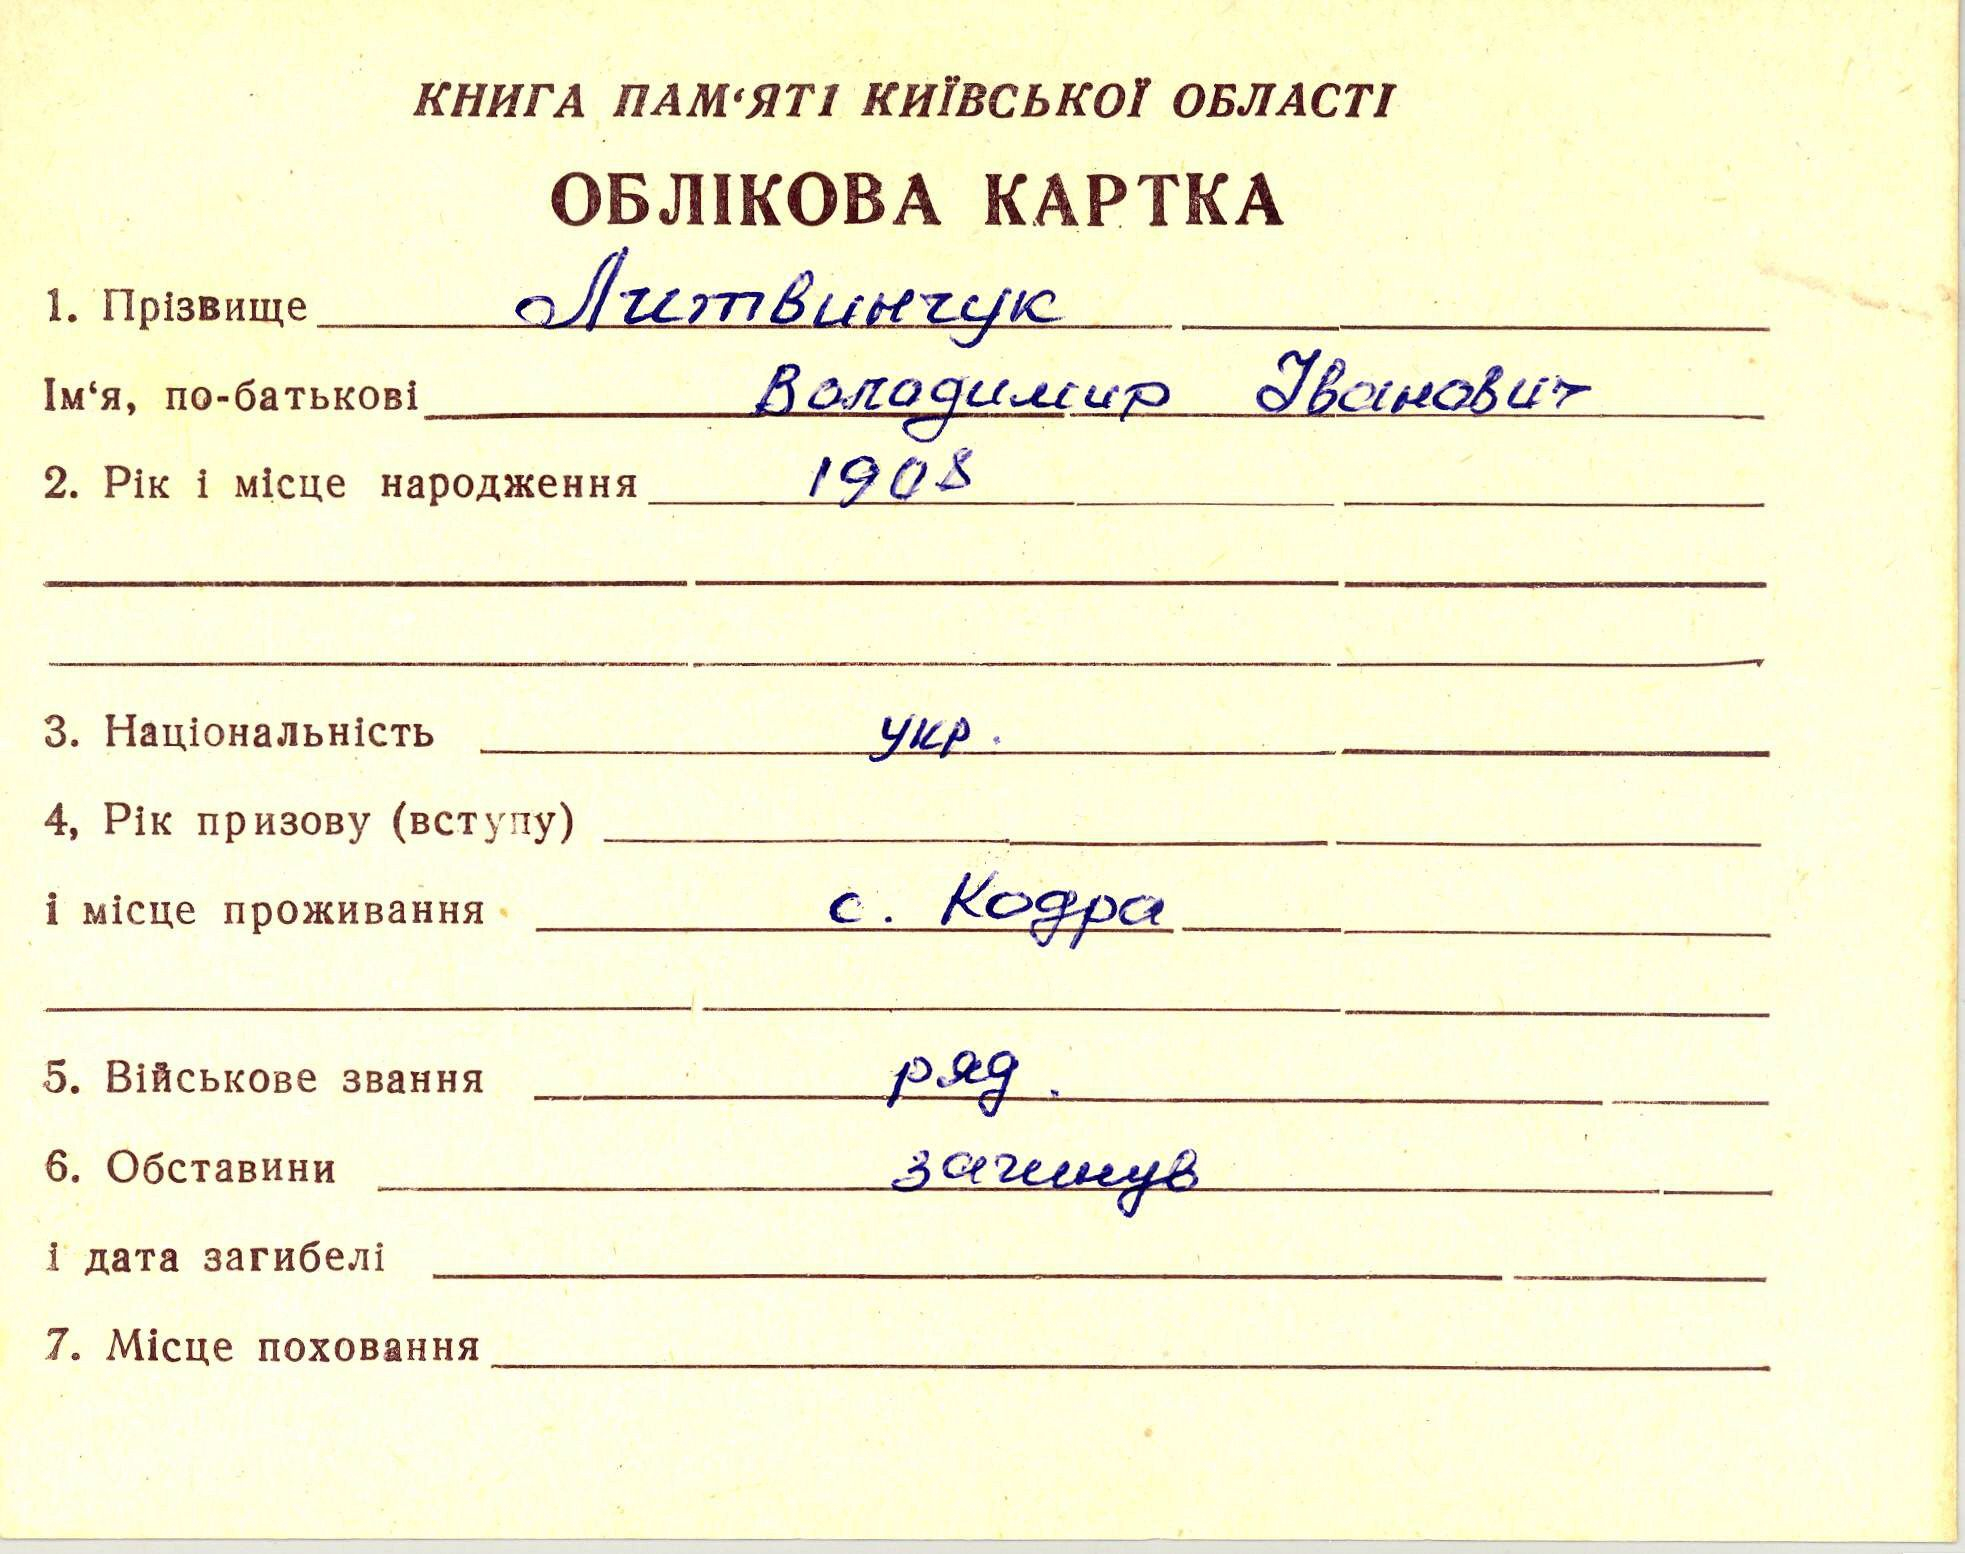 КНИГА ПАМ‘ЯТІ КИЇВСЬКОЇ ОБЛАСТІ
ОБЛІКОВА КАРТКА
1. Прізвище Литвинчук
Ім‘я, по-батькові Володимир Іванович
2. Рік і місце народження 1908
3. Національність укр.
4, Рік призову (вступу)
і місце проживання с. Кодра
5. Військове звання ряд.
6. Обставини загинув
і дата загибелі
7. Місце поховання